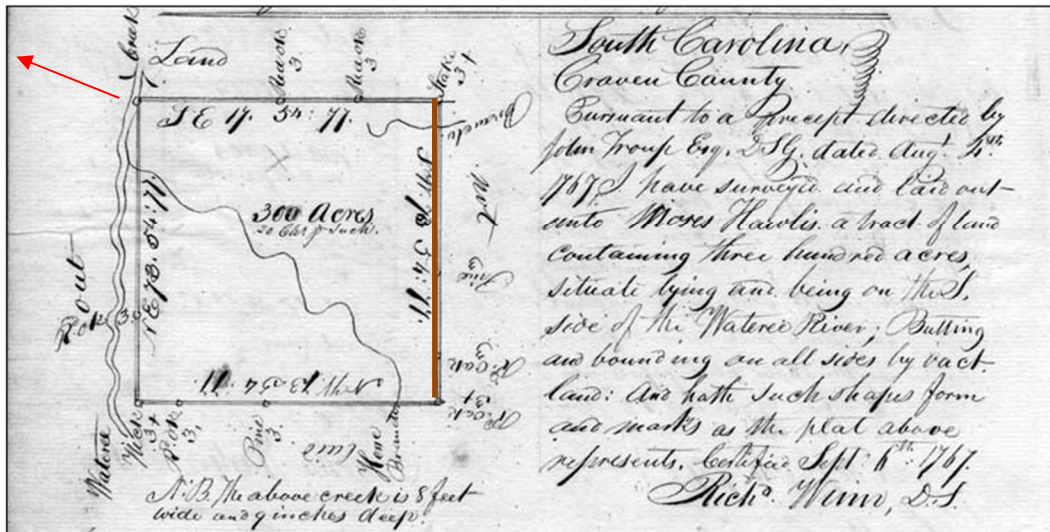 Land
creek
Stake
3+
3
3
S E 17. 54: 77.
Branch
Vact
300 Acres
20 Chs p Inch.
N E 73. 54: 77.
54: 77.
Pine
3
R. Oak
3
N W. 73. 54. 77
3
Wateree
3+
3,
Pine
3.
Land
Branch
3+
N.B. The above creek is 8 feet
wide and 9 inches deep.
South Carolina,
Craven County
Pursuant to a Precept directed by
John Troup Esq. D.S.G. dated Augt. 4th.
1767, I have surveyed and laid out
unto Moses Hawlis a tract of land
containing three hundred acres,
situate lying and being on the S.
side of the Wateree River; Butting
and bounding on all sides by vact.
land: And hath such shapes form
and marks as the plat above
represents. Certified Sept 6th: 1767.
Richd. Winn, D.S.